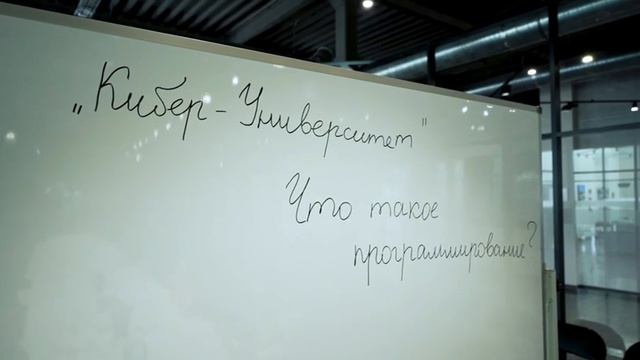 „Кибер-Университет"
Что такое
программирование?